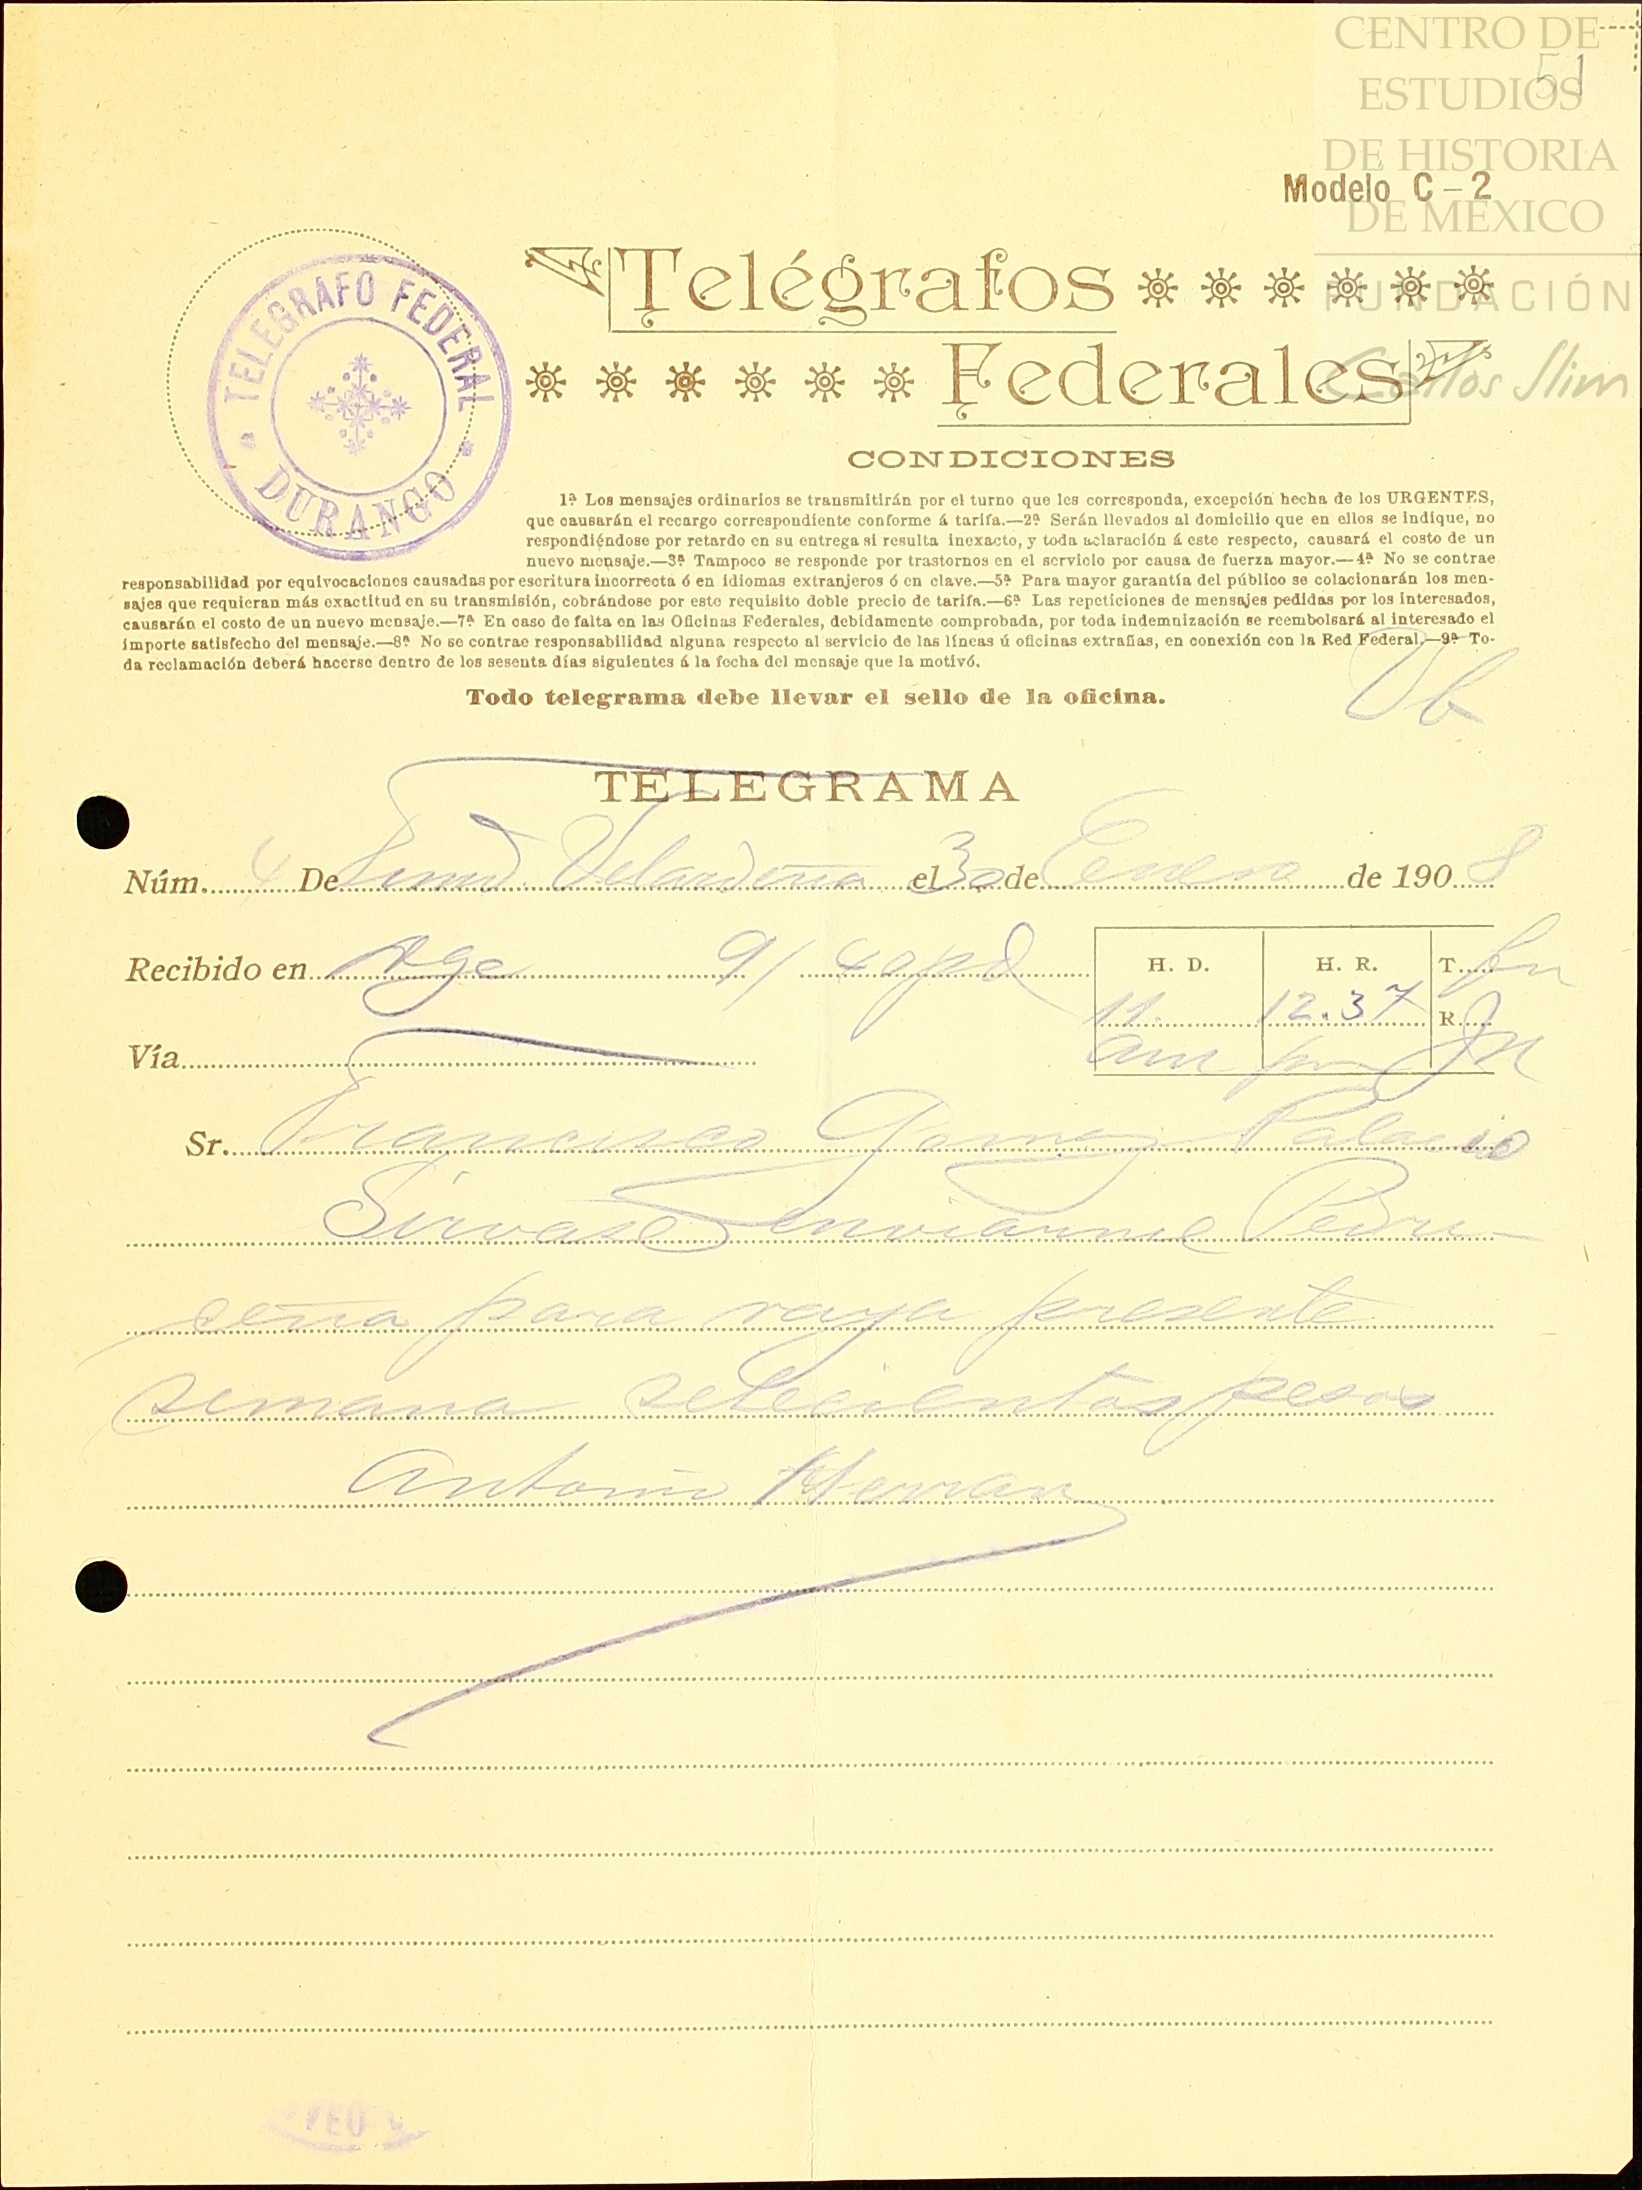 CENTRO DE
ESTUDIOS
DE HISTORIA
DE MÉXICO
FUNDACIÓN
Carlos Slim
51
Modelo C-2
TELEGRAFO FEDERAL
DURANGO
Telégrafos
Federales
CONDICIONES
1ª Los mensajes ordinarios se transmitirán por el turno que les corresponda, excepción hecha de los URGENTES,
que causarán el recargo correspondiente conforme á tarifa.—2ª Serán llevados al domicilio que en ellos se indique, no
respondiéndose por retardo en su entrega si resulta inexacto, y toda aclaración á este respecto, causará el costo de un
nuevo mensaje.—3ª Tampoco se responde por trastornos en el servicio por causa de fuerza mayor.—4ª No se contrae
responsabilidad por equivocaciones causadas por escritura incorrecta ó en idiomas extranjeros ó en clave.—5ª Para mayor garantía del público se colacionarán los men-
sajes que requieran más exactitud en su transmisión, cobrándose por este requisito doble precio de tarifa.—6ª Las repeticiones de mensajes pedidas por los interesados,
causarán el costo de un nuevo mensaje.—7ª En caso de falta en las Oficinas Federales, debidamente comprobada, por toda indemnización se reembolsará al interesado el
importe satisfecho del mensaje.—8ª No se contrae responsabilidad alguna respecto al servicio de las líneas ú oficinas extrañas, en conexión con la Red Federal.—9ª To-
da reclamación deberá hacerse dentro de los sesenta días siguientes á la fecha del mensaje que la motivó.
Todo telegrama debe llevar el sello de la oficina.
TELEGRAMA
Núm. 4 De Velardeña el 30 de Enero de 1908
Recibido en Dgo 9/ pd
H. D. H. R. T.
11. 12.37 R.
am pm JM
Vía
Sr. Francisco Gomez Palacio
Sirvase enviarme Pedri-
ceña para raya presente
semana setecientos pesos
Antonio Herran